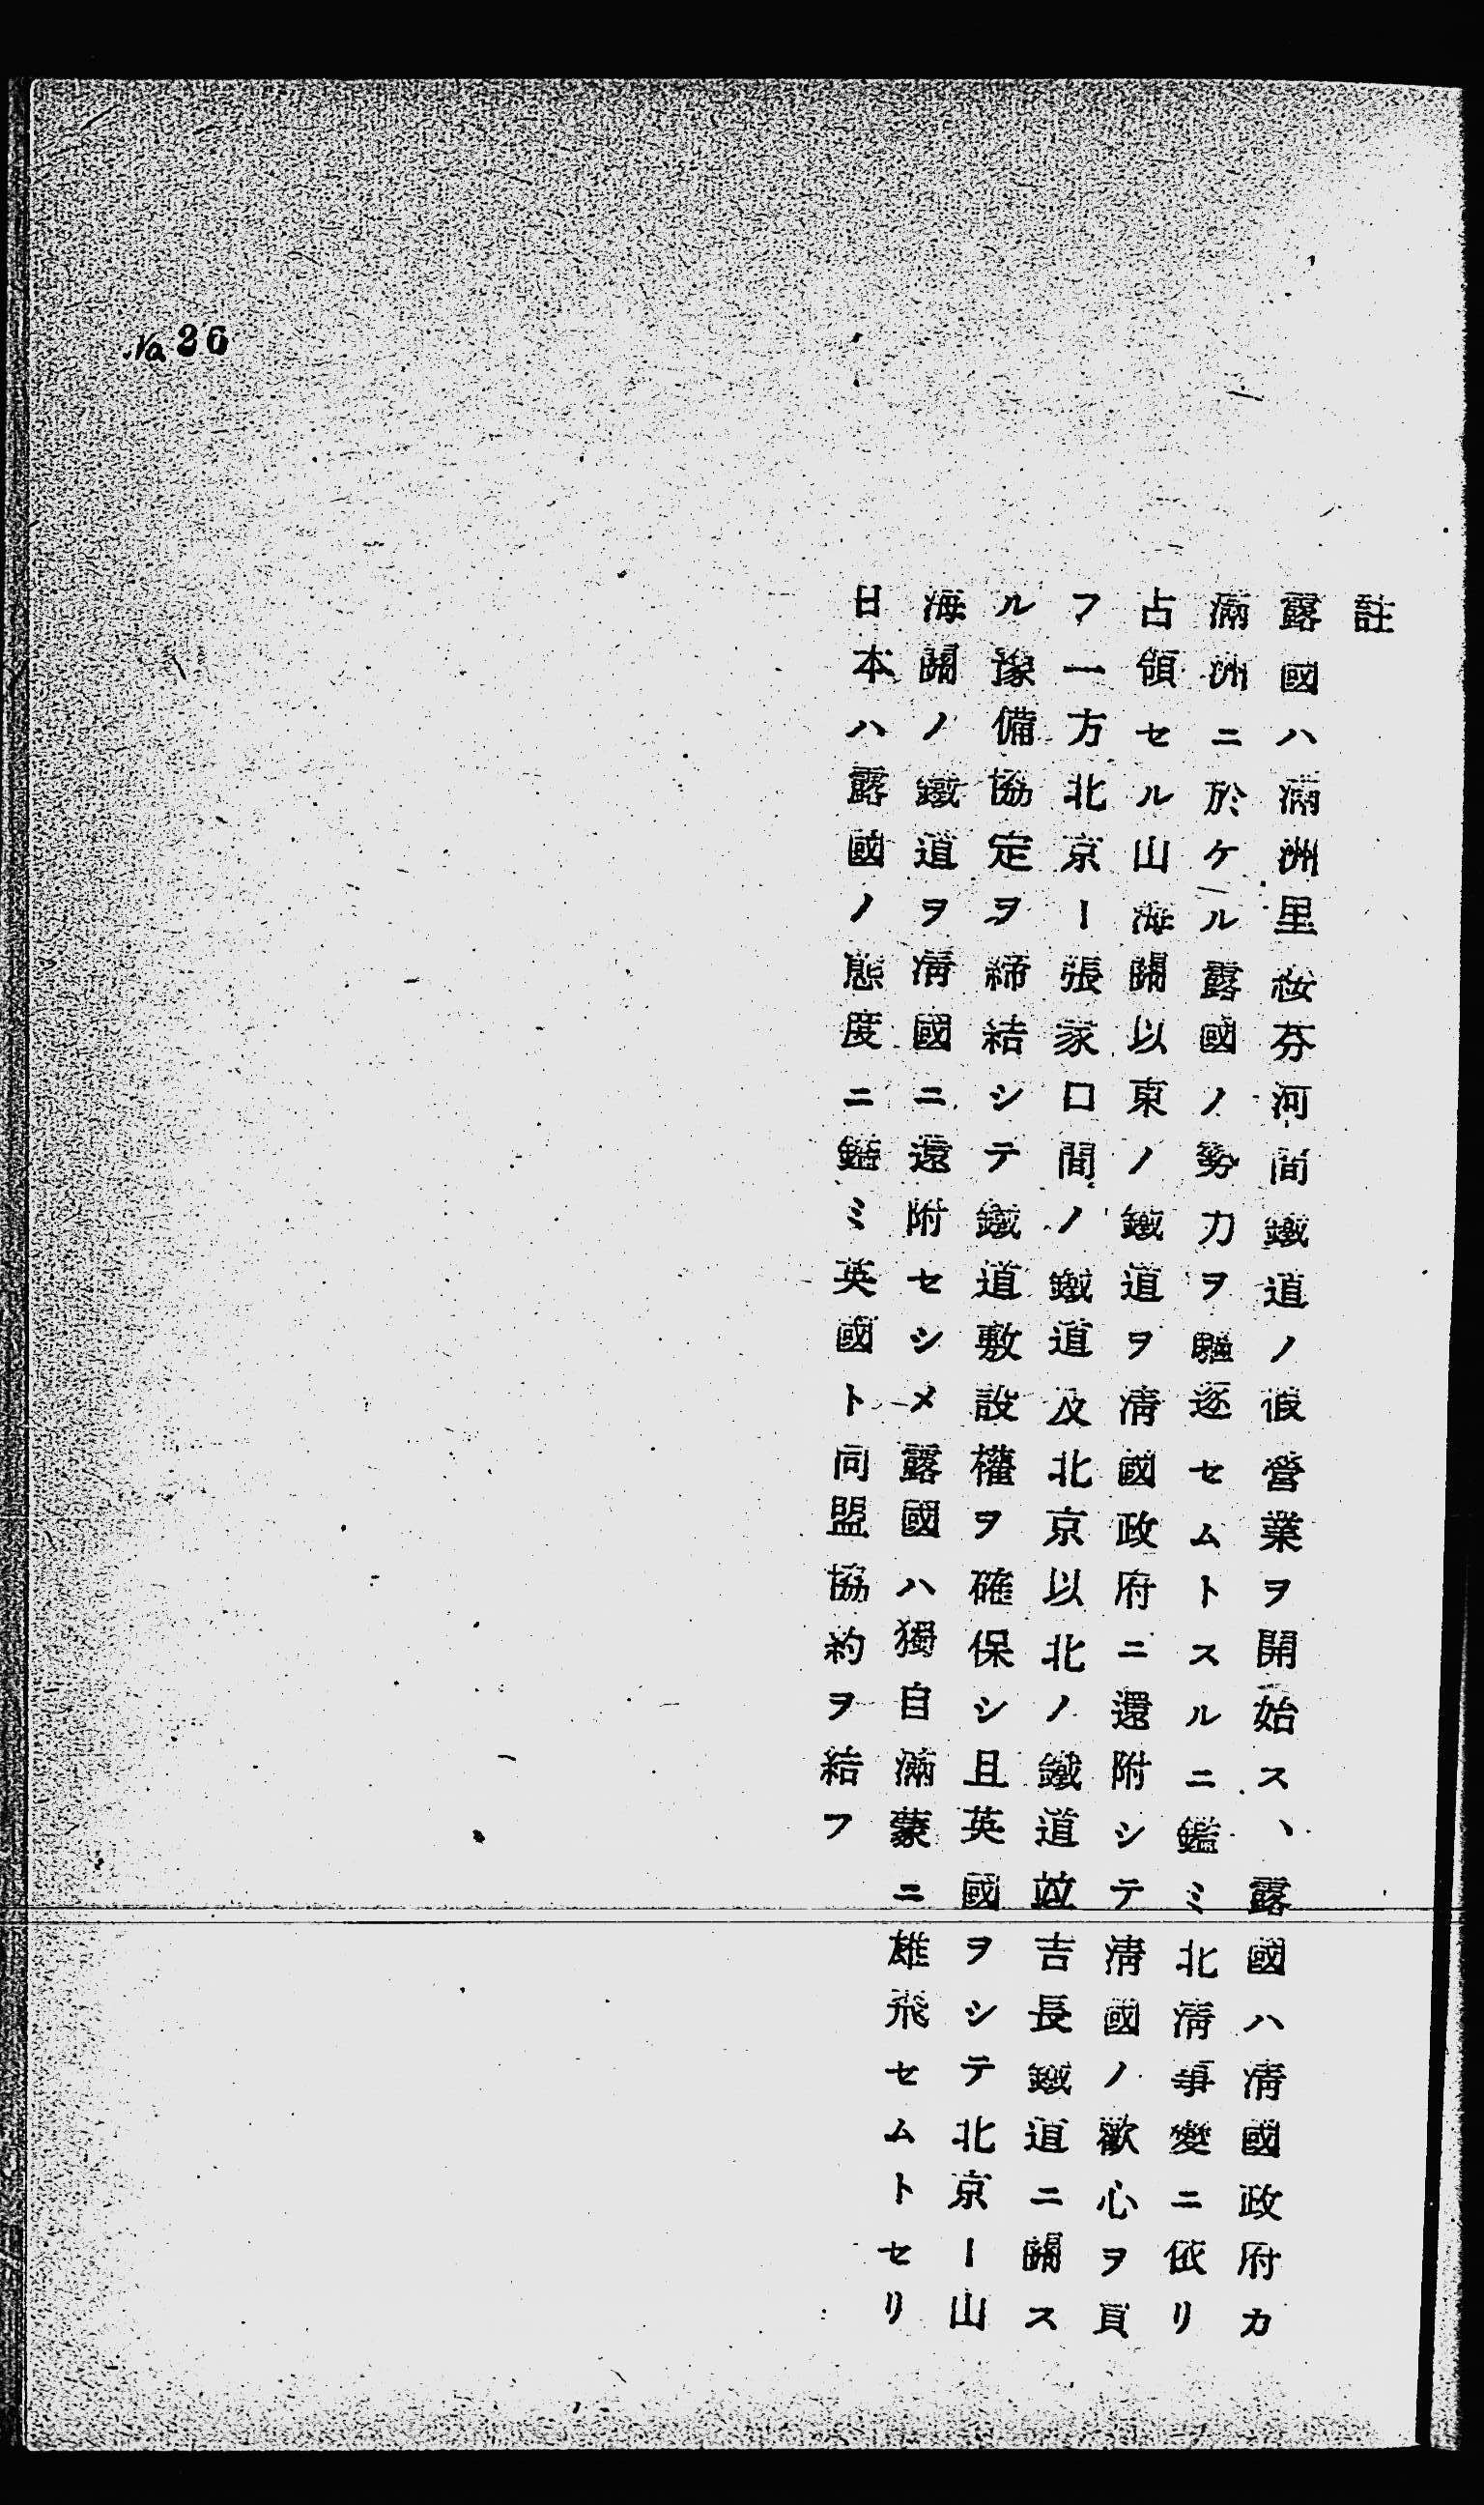 註
露國ハ滿洲里綏芬河間鐵道ノ假營業ヲ開始ス、露國ハ淸國政府カ
滿洲ニ於ケル露國ノ勢力ヲ驅逐セムトスルニ鑑ミ北淸事變ニ依リ
占領セル山海關以東ノ鐵道ヲ淸國政府ニ還附シテ淸國ノ歡心ヲ買
フ一方北京ー張家口間ノ鐵道及北京以北ノ鐵道竝吉長鐵道ニ關ス
ル豫備協定ヲ締結シテ鐵道敷設權ヲ確保シ且英國ヲシテ北京ー山
海關ノ鐵道ヲ淸國ニ還附セシメ露國ハ獨自滿蒙ニ雄飛セムトセリ
日本ハ露國ノ態度ニ鑑ミ英國ト同盟協約ヲ結フ
No. 26